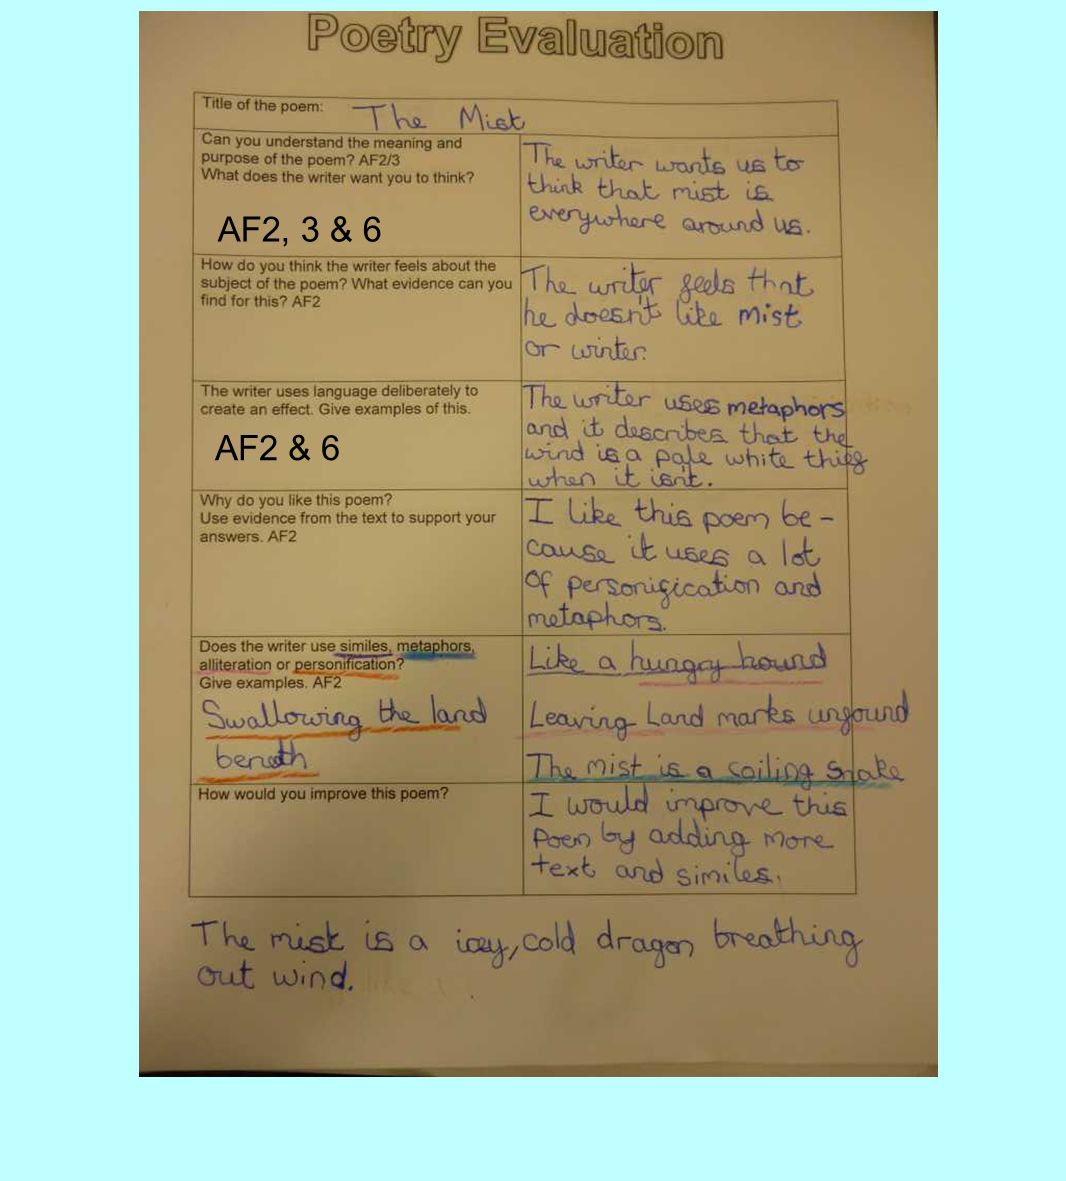 Poetry Evaluation
Title of the poem: The Mist
Can you understand the meaning and
purpose of the poem? AF2/3
What does the writer want you to think?
AF2, 3 & 6
The writer wants us to
think that mist is
everywhere around us.
How do you think the writer feels about the
subject of the poem? What evidence can you
find for this? AF2
The writer feels that
he doesn't like mist
or winter.
The writer uses language deliberately to
create an effect. Give examples of this.
AF2 & 6
The writer uses metaphors
and it describes that the
wind is a pale white thief
when it isn't.
Why do you like this poem?
Use evidence from the text to support your
answers. AF2
I like this poem be-
cause it uses a lot
of personification and
metaphors.
Does the writer use similes, metaphors,
alliteration or personification?
Give examples. AF2
Swallowing the land
beneath
Like a hungry hound
Leaving Land marks unfound
The mist is a coiling snake
How would you improve this poem?
I would improve this
Poem by adding more
text and similes.
The mist is a icey, cold dragon breathing
out wind.